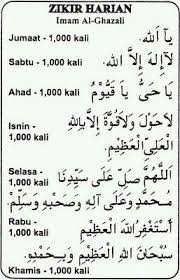 ZIKIR HARIAN
Imam Al-Ghazali
Jumaat - 1,000 kali يَا اَللهُ
Sabtu - 1,000 kali لَا إِلٰهَ إِلَّا اللهُ
Ahad - 1,000 kali يَا حَيُّ يَا قَيُّوْمُ
لَا حَوْلَ وَلَا قُوَّةَ إِلَّا بِاللهِ
Isnin -
1,000 kali الْعَلِيِّ الْعَظِيْمِ
Selasa - اَللّٰهُمَّ صَلِّ عَلَى سَيِّدِنَا
1,000 kali
مُحَمَّدٍ وَعَلَى آلِهِ وَصَحْبِهِ وَسَلِّمْ
Rabu - أَسْتَغْفِرُ اللهَ الْعَظِيْمَ
1,000 kali
سُبْحَانَ اللهِ الْعَظِيْمِ وَبِحَمْدِهِ
Khamis - 1,000 kali